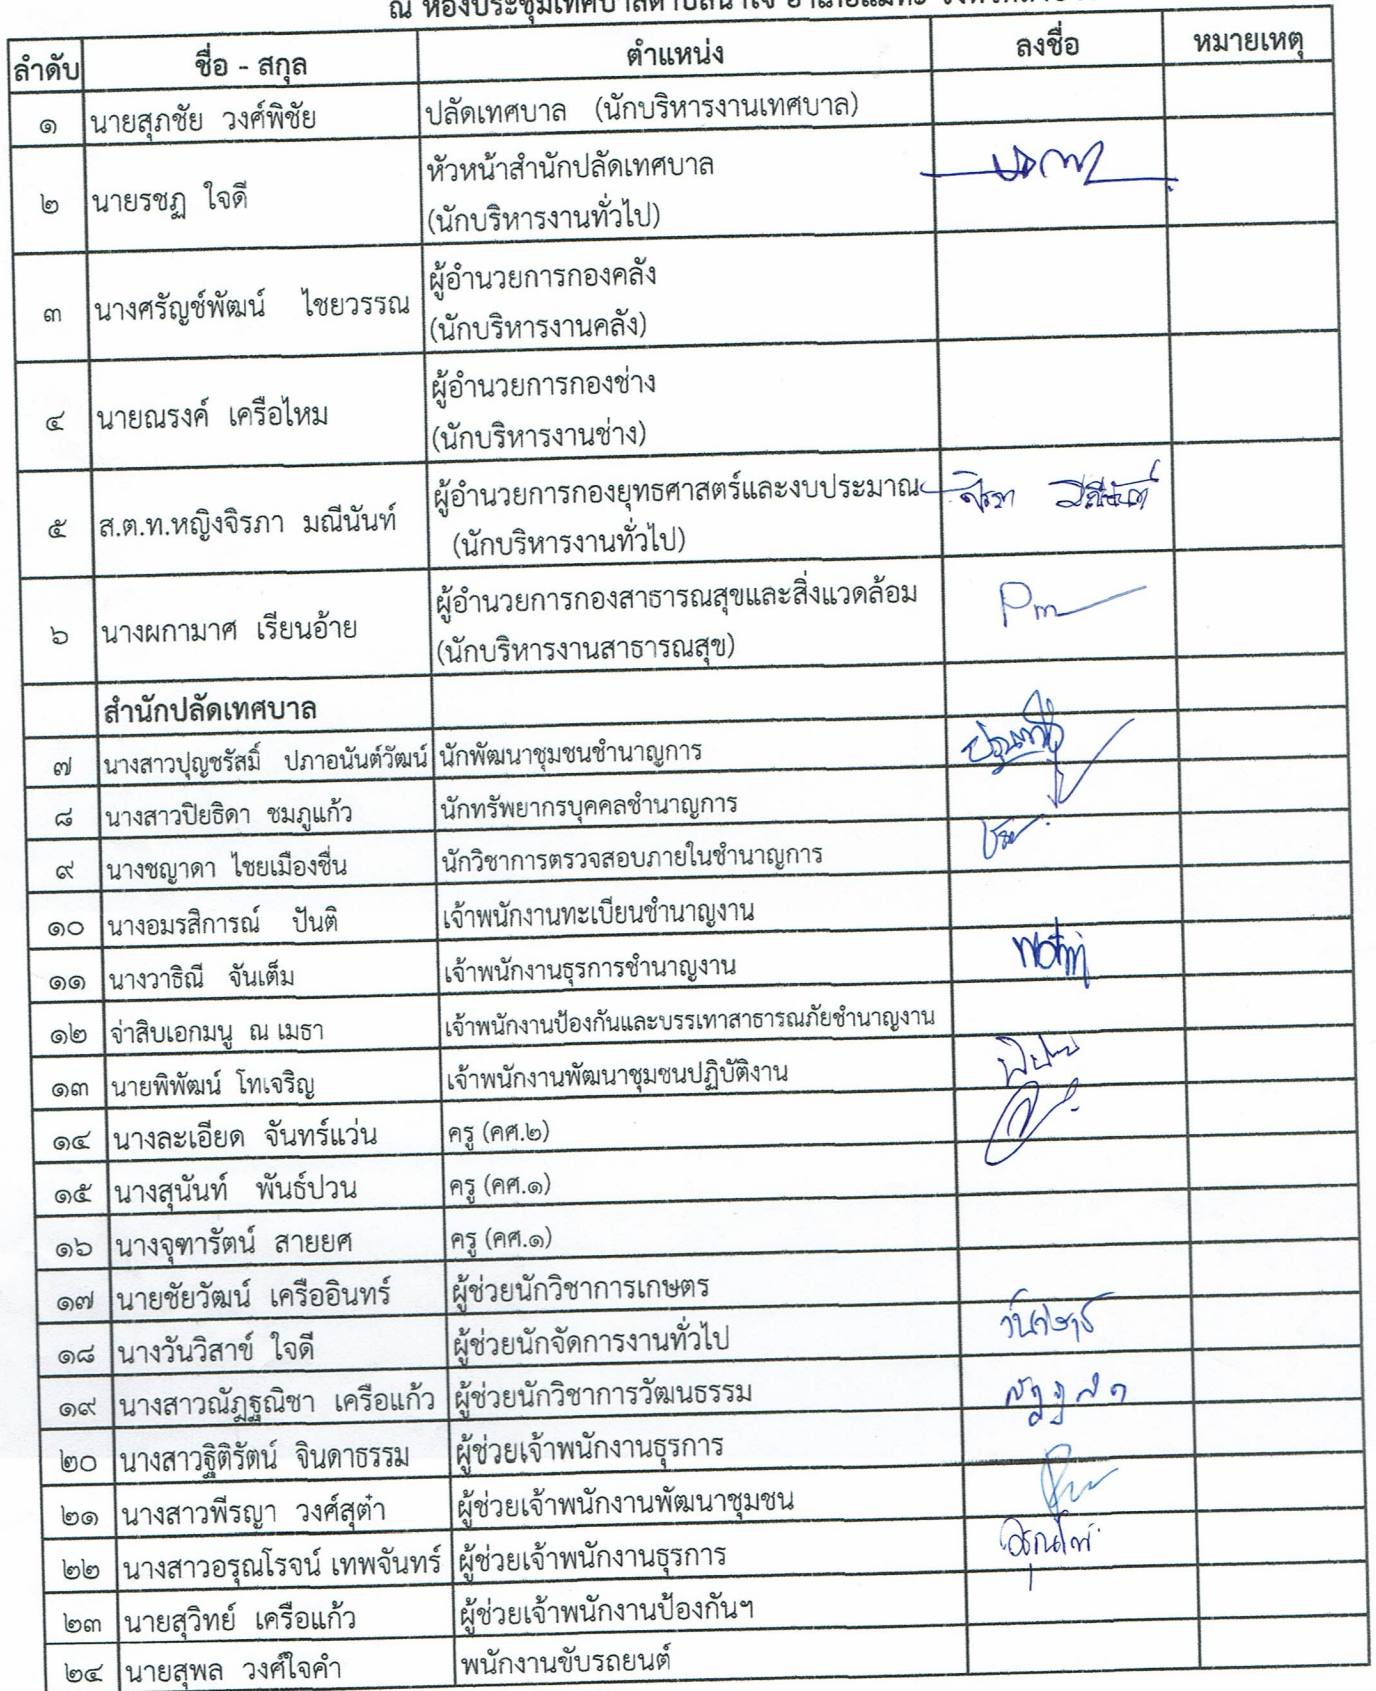 ณ ห้องประชุมเทศบาลตำบลนาโจ อำเภอแม่ทะ
ลำดับ ชื่อ - สกุล ตำแหน่ง ลงชื่อ หมายเหตุ
๑ นายสุภชัย วงศ์พิชัย ปลัดเทศบาล (นักบริหารงานเทศบาล)
๒ นายรชฏ ใจดี หัวหน้าสำนักปลัดเทศบาล
(นักบริหารงานทั่วไป)
๓ นางศรัญช์พัฒน์ ไชยวรรณ ผู้อำนวยการกองคลัง
(นักบริหารงานคลัง)
๔ นายณรงค์ เครือไหม ผู้อำนวยการกองช่าง
(นักบริหารงานช่าง)
๕ ส.ต.ท.หญิงจิรภา มณีนันท์ ผู้อำนวยการกองยุทธศาสตร์และงบประมาณ
(นักบริหารงานทั่วไป)
๖ นางผกามาศ เรียนอ้าย ผู้อำนวยการกองสาธารณสุขและสิ่งแวดล้อม
(นักบริหารงานสาธารณสุข)
สำนักปลัดเทศบาล
๗ นางสาวปุญชรัสมิ์ ปภาอนันต์วัฒน์ นักพัฒนาชุมชนชำนาญการ
๘ นางสาวปิยธิดา ชมภูแก้ว นักทรัพยากรบุคคลชำนาญการ
๙ นางชญาดา ไชยเมืองชื่น นักวิชาการตรวจสอบภายในชำนาญการ
๑๐ นางอมรสิการณ์ ปันติ เจ้าพนักงานทะเบียนชำนาญงาน
๑๑ นางวาธิณี จันเต็ม เจ้าพนักงานธุรการชำนาญงาน
๑๒ จ่าสิบเอกมนู ณ เมธา เจ้าพนักงานป้องกันและบรรเทาสาธารณภัยชำนาญงาน
๑๓ นายพิพัฒน์ โทเจริญ เจ้าพนักงานพัฒนาชุมชนปฏิบัติงาน
๑๔ นางละเอียด จันทร์แว่น ครู (คศ.๒)
๑๕ นางสุนันท์ พันธ์ปวน ครู (คศ.๑)
๑๖ นางจุฑารัตน์ สายยศ ครู (คศ.๑)
๑๗ นายชัยวัฒน์ เครืออินทร์ ผู้ช่วยนักวิชาการเกษตร
๑๘ นางวันวิสาข์ ใจดี ผู้ช่วยนักจัดการงานทั่วไป
๑๙ นางสาวณัฎฐณิชา เครือแก้ว ผู้ช่วยนักวิชาการวัฒนธรรม
๒๐ นางสาวฐิติรัตน์ จินดาธรรม ผู้ช่วยเจ้าพนักงานธุรการ
๒๑ นางสาวพีรญา วงศ์สุต๋า ผู้ช่วยเจ้าพนักงานพัฒนาชุมชน
๒๒ นางสาวอรุณโรจน์ เทพจันทร์ ผู้ช่วยเจ้าพนักงานธุรการ
๒๓ นายสุวิทย์ เครือแก้ว ผู้ช่วยเจ้าพนักงานป้องกันฯ
๒๔ นายสุพล วงศ์ใจคำ พนักงานขับรถยนต์